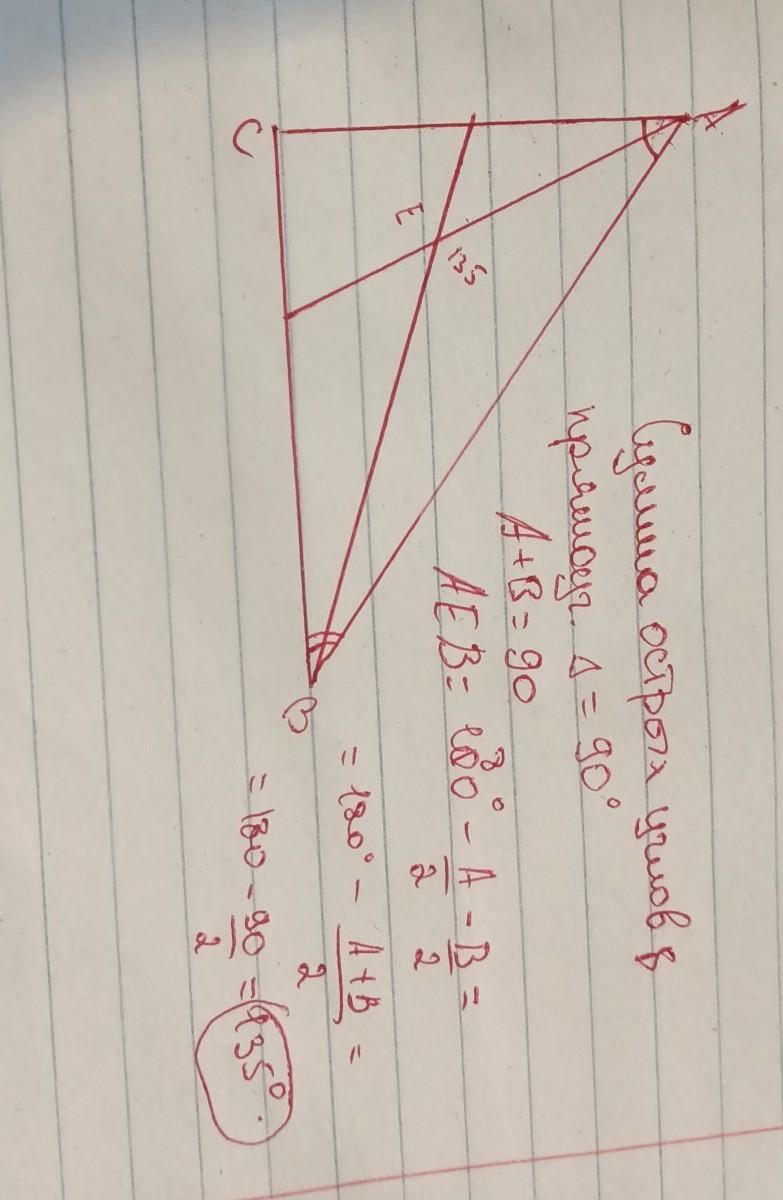 A
C
E
135
B
Сумма острых углов в
прямоуг. Δ = 90°
A + B = 90
AEB = 180° - A/2 - B/2 =
= 180° - (A+B)/2 =
= 180 - 90/2 = 135°.